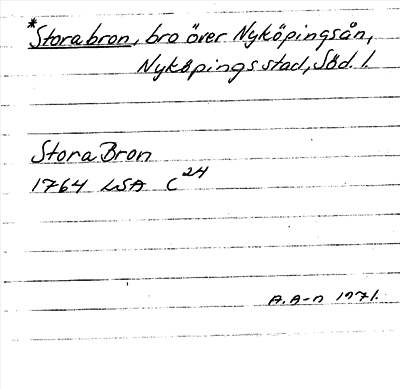 *Storabron, bro över Nyköpingsån,
Nyköpings stad, Söd. l.
Stora Bron
1764 LSA C 24
A. A-n 1971.